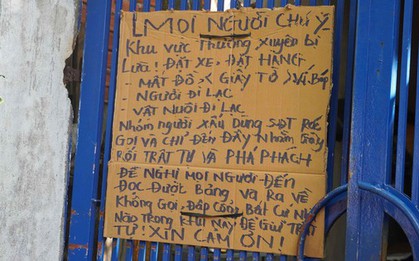 MỌI NGƯỜI CHÚ Ý
Khu vực Thường xuyên bị
Lừa! ĐẶT XE, ĐẶT HÀNG
- MẤT ĐỒ, < GIẤY TỜ >
NGƯỜI ĐI LẠC
VẬT NUÔI ĐI LẠC
Nhóm người XẤU DÙNG SĐT
GỌI VÀ CHỈ ĐẾN ĐÂY NHẰM GÂY
RỐI TRẬT TỰ VÀ PHÁ PHÁCH
ĐỀ NGHỊ MỌI NGƯỜI ĐẾN
ĐỌC ĐƯỢT BẢNG VÀ RA VỀ
KHÔNG GỌI, ĐẬP CỔNG BẤT CỨ
NÀO TRONG KHU NÀY ĐỂ GIỮ TRẬT
TỰ! XIN CẢM ƠN!